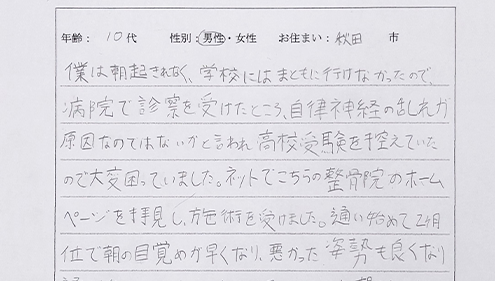 年齢： 10代 性別：男性・女性 お住まい： 秋田 市
僕は朝起きれなく、学校にはまともに行けなかったので、
病院で診察を受けたところ、自律神経の乱れが
原因なのではないかと言われ高校受験を控えていた
ので大変困っていました。ネットでこちらの整骨院のホーム
ページを拝見し、施術を受けました。通い始めて2ヶ月
位で朝の目覚めが早くなり、悪かった姿勢も良くなり